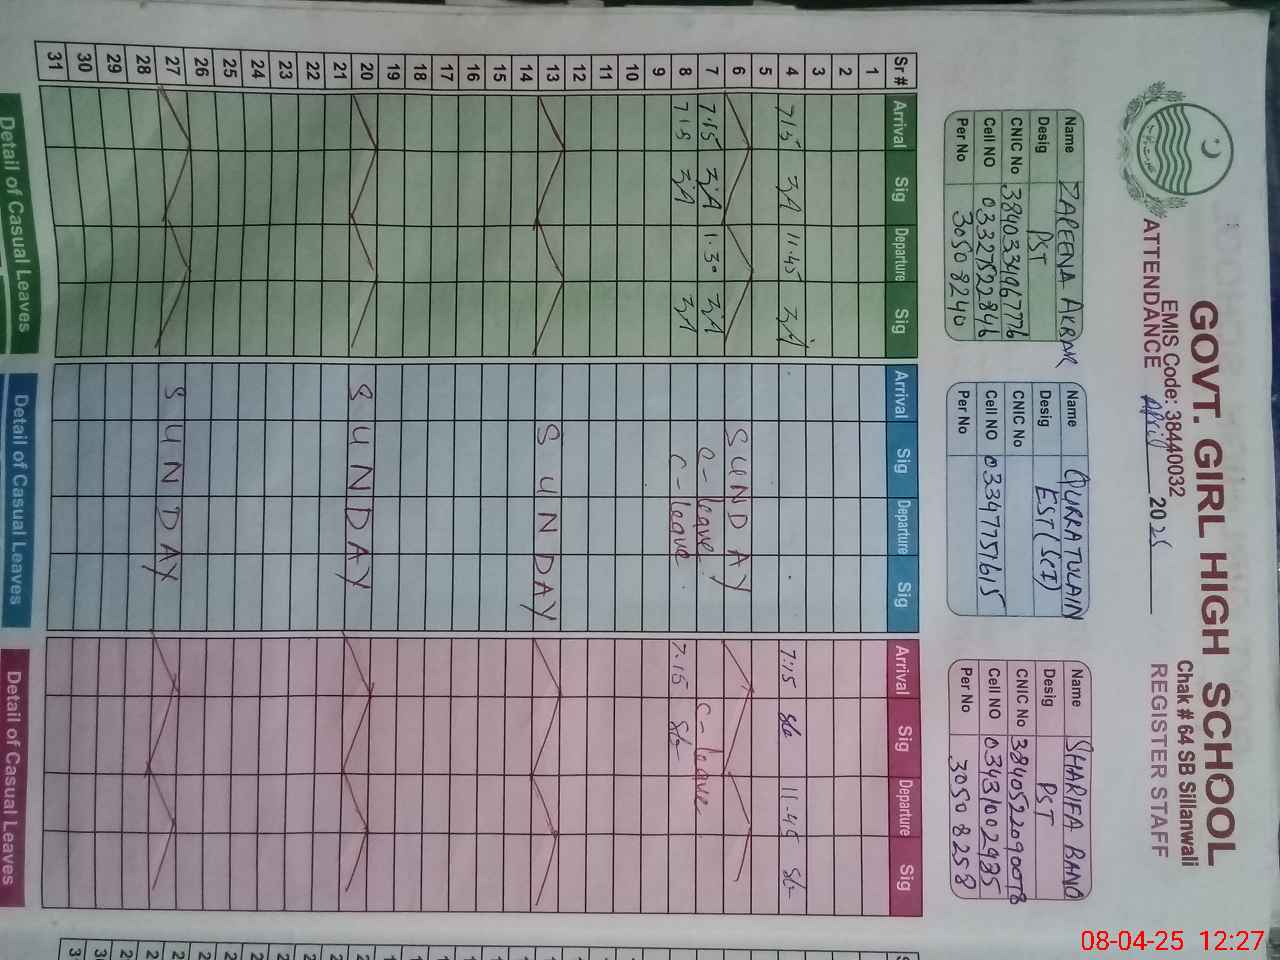 GOVT. GIRL HIGH SCHOOL
EMIS Code: 38440032 Chak # 64 SB Sillanwali
ATTENDANCE April 2025 REGISTER STAFF
Name ZAREENA AKBAR
Desig PST
CNIC No 3840334967776
Cell NO 03327522846
Per No 30508240
Name QURRATULAIN
Desig EST(SCI)
CNIC No
Cell NO 03347751615
Per No
Name SHARIFA BANO
Desig PST
CNIC No
Cell NO 03431002985
Per No 30508258
Sr # Arrival Sig Departure Sig Arrival Sig Departure Sig Arrival Sig Departure Sig
1
2
3
4 715 ZA 11.45 ZA 7:15 11-45
5
6 SUNDAY
7 7.15 ZA 1.30 ZA C-leave C-leave
8 715 ZA ZA C-leave 7.15
9
10
11
12
13 SUNDAY
14
15
16
17
18
19
20 SUNDAY
21
22
23
24
25
26
27 SUNDAY
28
29
30
31
Detail of Casual Leaves Detail of Casual Leaves Detail of Casual Leaves
08-04-25 12:27